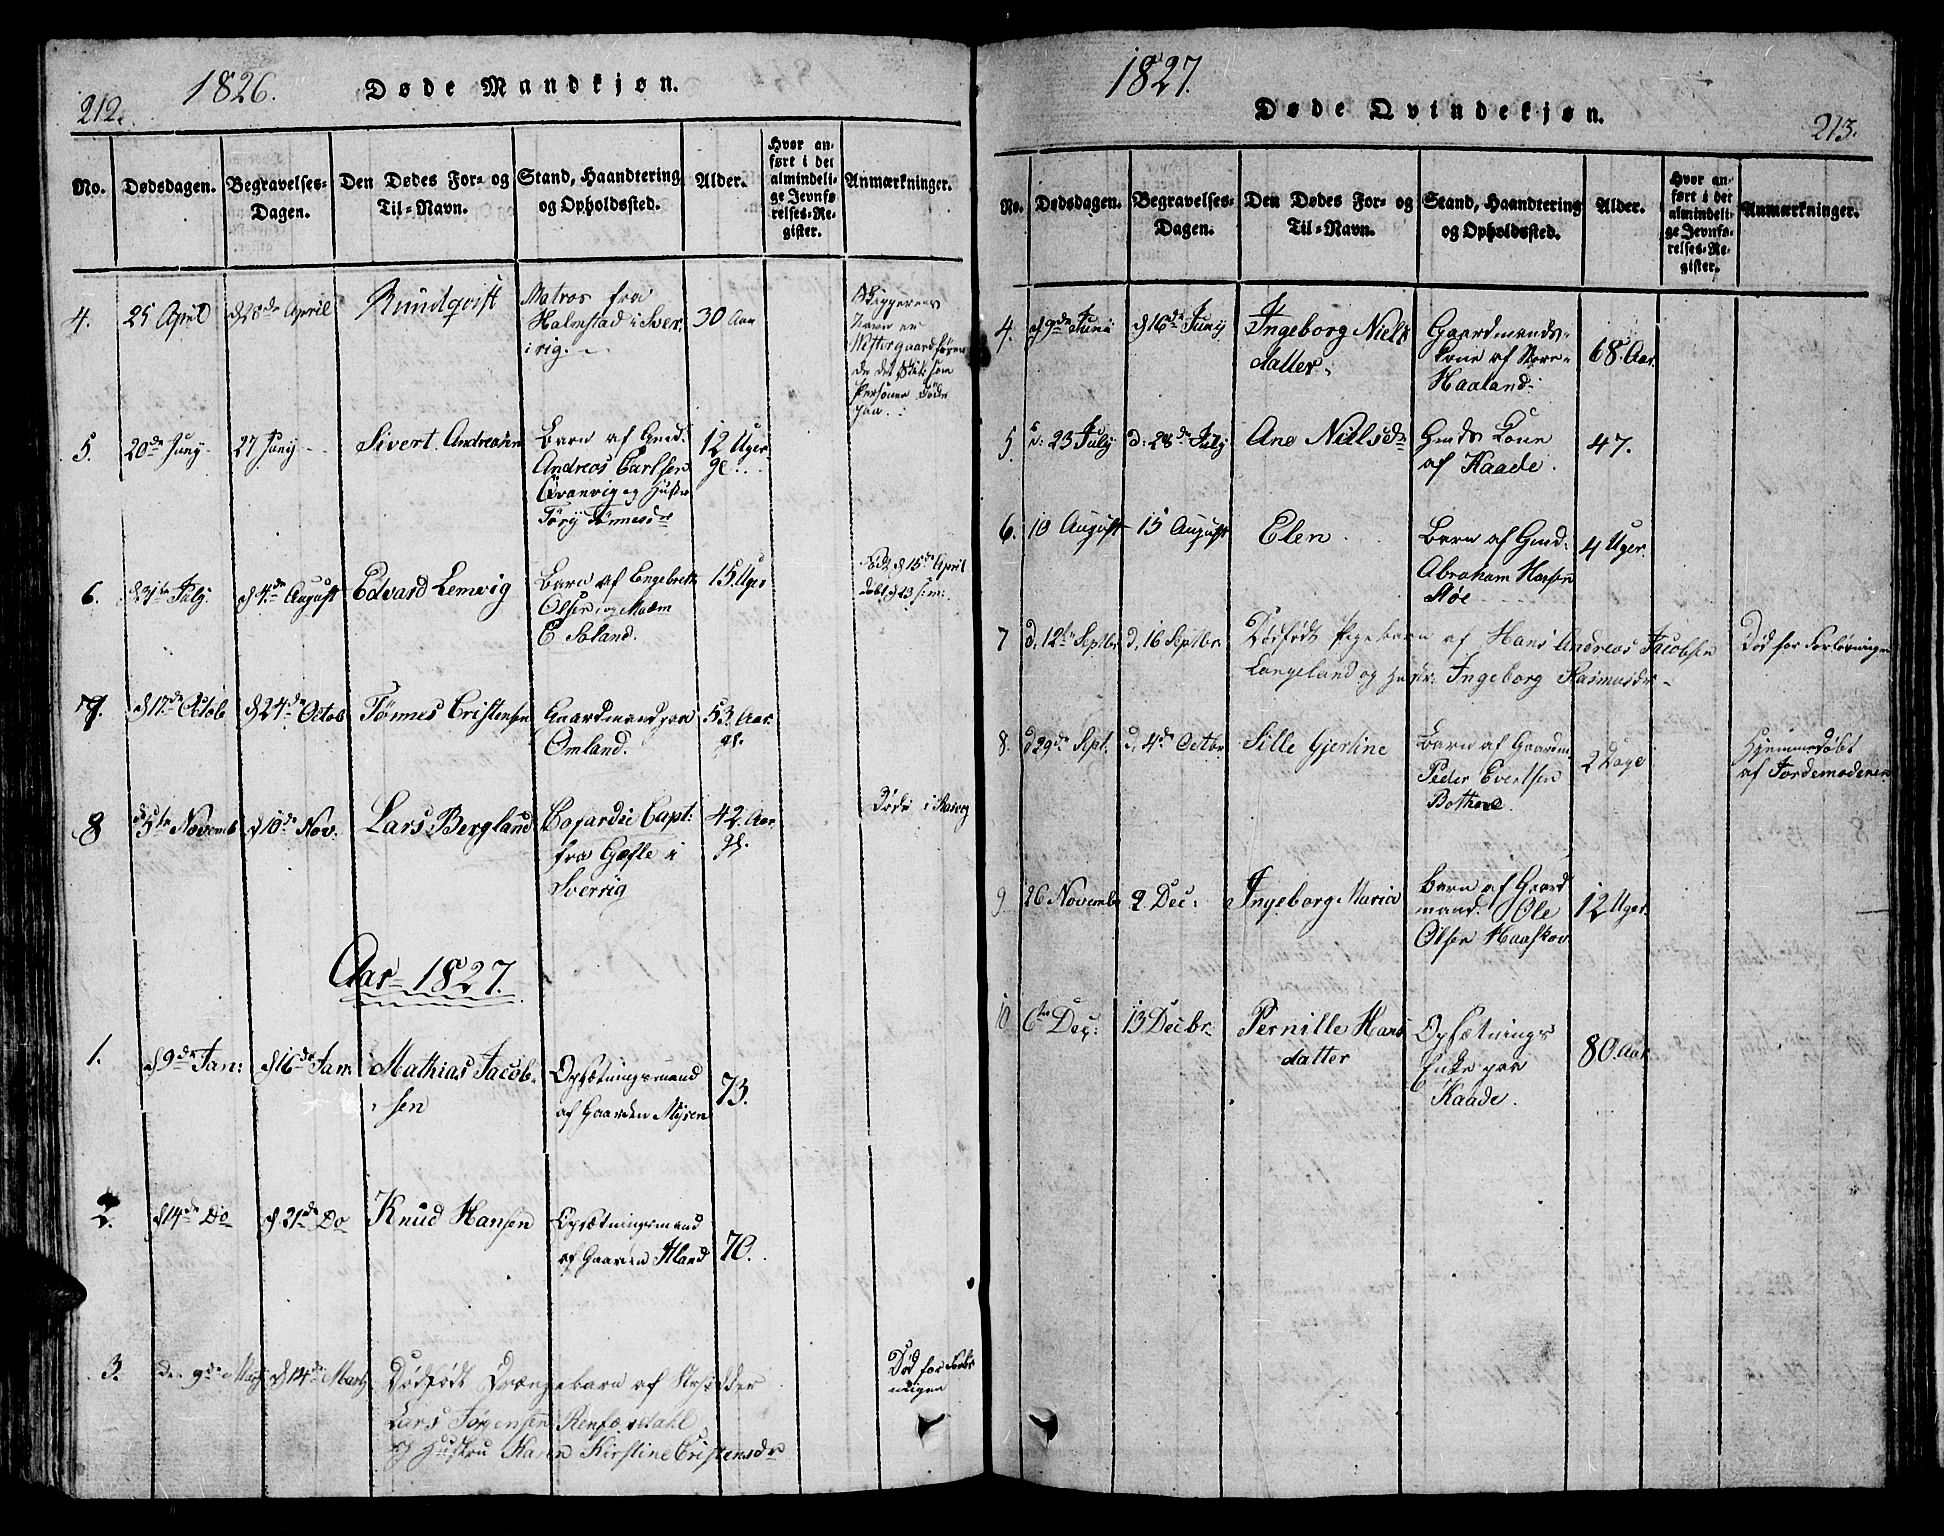 212.
1826.
Døde Mandkjøn.
No.
Dødsdagen.
Begravelses-
Dagen.
Den Dødes For- og
Til-Navn.
Stand, Haandtering
og Opholdssted.
Alder.
Hvor an-
ført i det
almindeli-
ge Jevnfø-
relses-Re-
gister.
Anmærkninger.
4.
25 April
d 28de April
Rundqvist
Matros fra
Halmstad i Sver
irig.
30 Aar
Skipperens
Navn er
de det Skib som
Personen døde
paa.
5.
20de Juny
27 Juny
Sivert Andreasen
Barn af Gmd.
Andreas Carlsen
Qvanvig og Hustr
Tønnesdr
12 Uger
gl.
6.
d 31te July
d 4de August
Edvard Lemvig
Barn af Engebreth
Olsen og Madm
E Soland.
15 Uger
Født d 15de April
døbt d 23
7.
d 17de Octob
d 24de Octob
Tønnes Cristensen
Gaardmand paa
Omland.
53 Aar
gl.
8
d 5te Novemb
d 10de Nov.
Lars Berglund
Cofardie Capt:
fra Gefle i
Sverrig
42 Aar
gl.
Døde i Rasvog
Aar 1827.
1.
d 9de Jan:
d 16de Jan
Mathias Jacob-
sen
Opsætningsmand
af Gaarden Myren
73.
2.
d 14de Do
d 21de Do
Knud Hansen
Opsætningsmand
af Gaarden Jland
70.
3.
den 9de Marts
d 14de Marts
Dødfødt Drængebarn af
Lars Jørgensen Renfærdahl
og Hustru Karen Kirstine Cristensdr
Død for Forløs
ningen
1827.
Døde Qvindekjøn.
213.
No.
Dødsdagen.
Begravelses-
Dagen.
Den Dødes For- og
Til-Navn.
Stand, Haandtering
og Opholdssted.
Alder.
Hvor an-
ført i det
almindeli-
ge Jevnfø-
relses-Re-
gister.
Anmærkninger.
4.
d 9de Juni
d 16de Juny
Ingeborg Niels
datter
Gaardmands-
kone af Nore-
Haaland.
68 Aar.
5.
d: 23 July
d: 28de July
Ane Nielsdr
Gmds Kone
af Kaade.
47.
6.
10 August
15 August
Elen
Barn af Gmd.
Abraham Hansen
Røe
4 Uger.
7
d. 12te Septbr
d. 16 Septbr.
Dødfødt Pigebarn af Hans Andreas Jacobsen
Langeland og Hustr. Ingeborg Rasmusdr
Død for Forløsningen
8.
d 29de Sept.
d. 4de Octbr
Sille Gjertine
Barn af Gaardm
Peder Evertsen
2 Dage
Hjemmedøbt
af Jordemoderen
9
26 Novembr
2 Dec:
Ingeborg Maria
Barn af Gaard
mand. Ole
Olsen Haaskov
12 Uger.
10
6te Dec:
13 Decbr
Pernille Hans
datter
Opsætnings
Enke paa
Kaade.
80 Aar